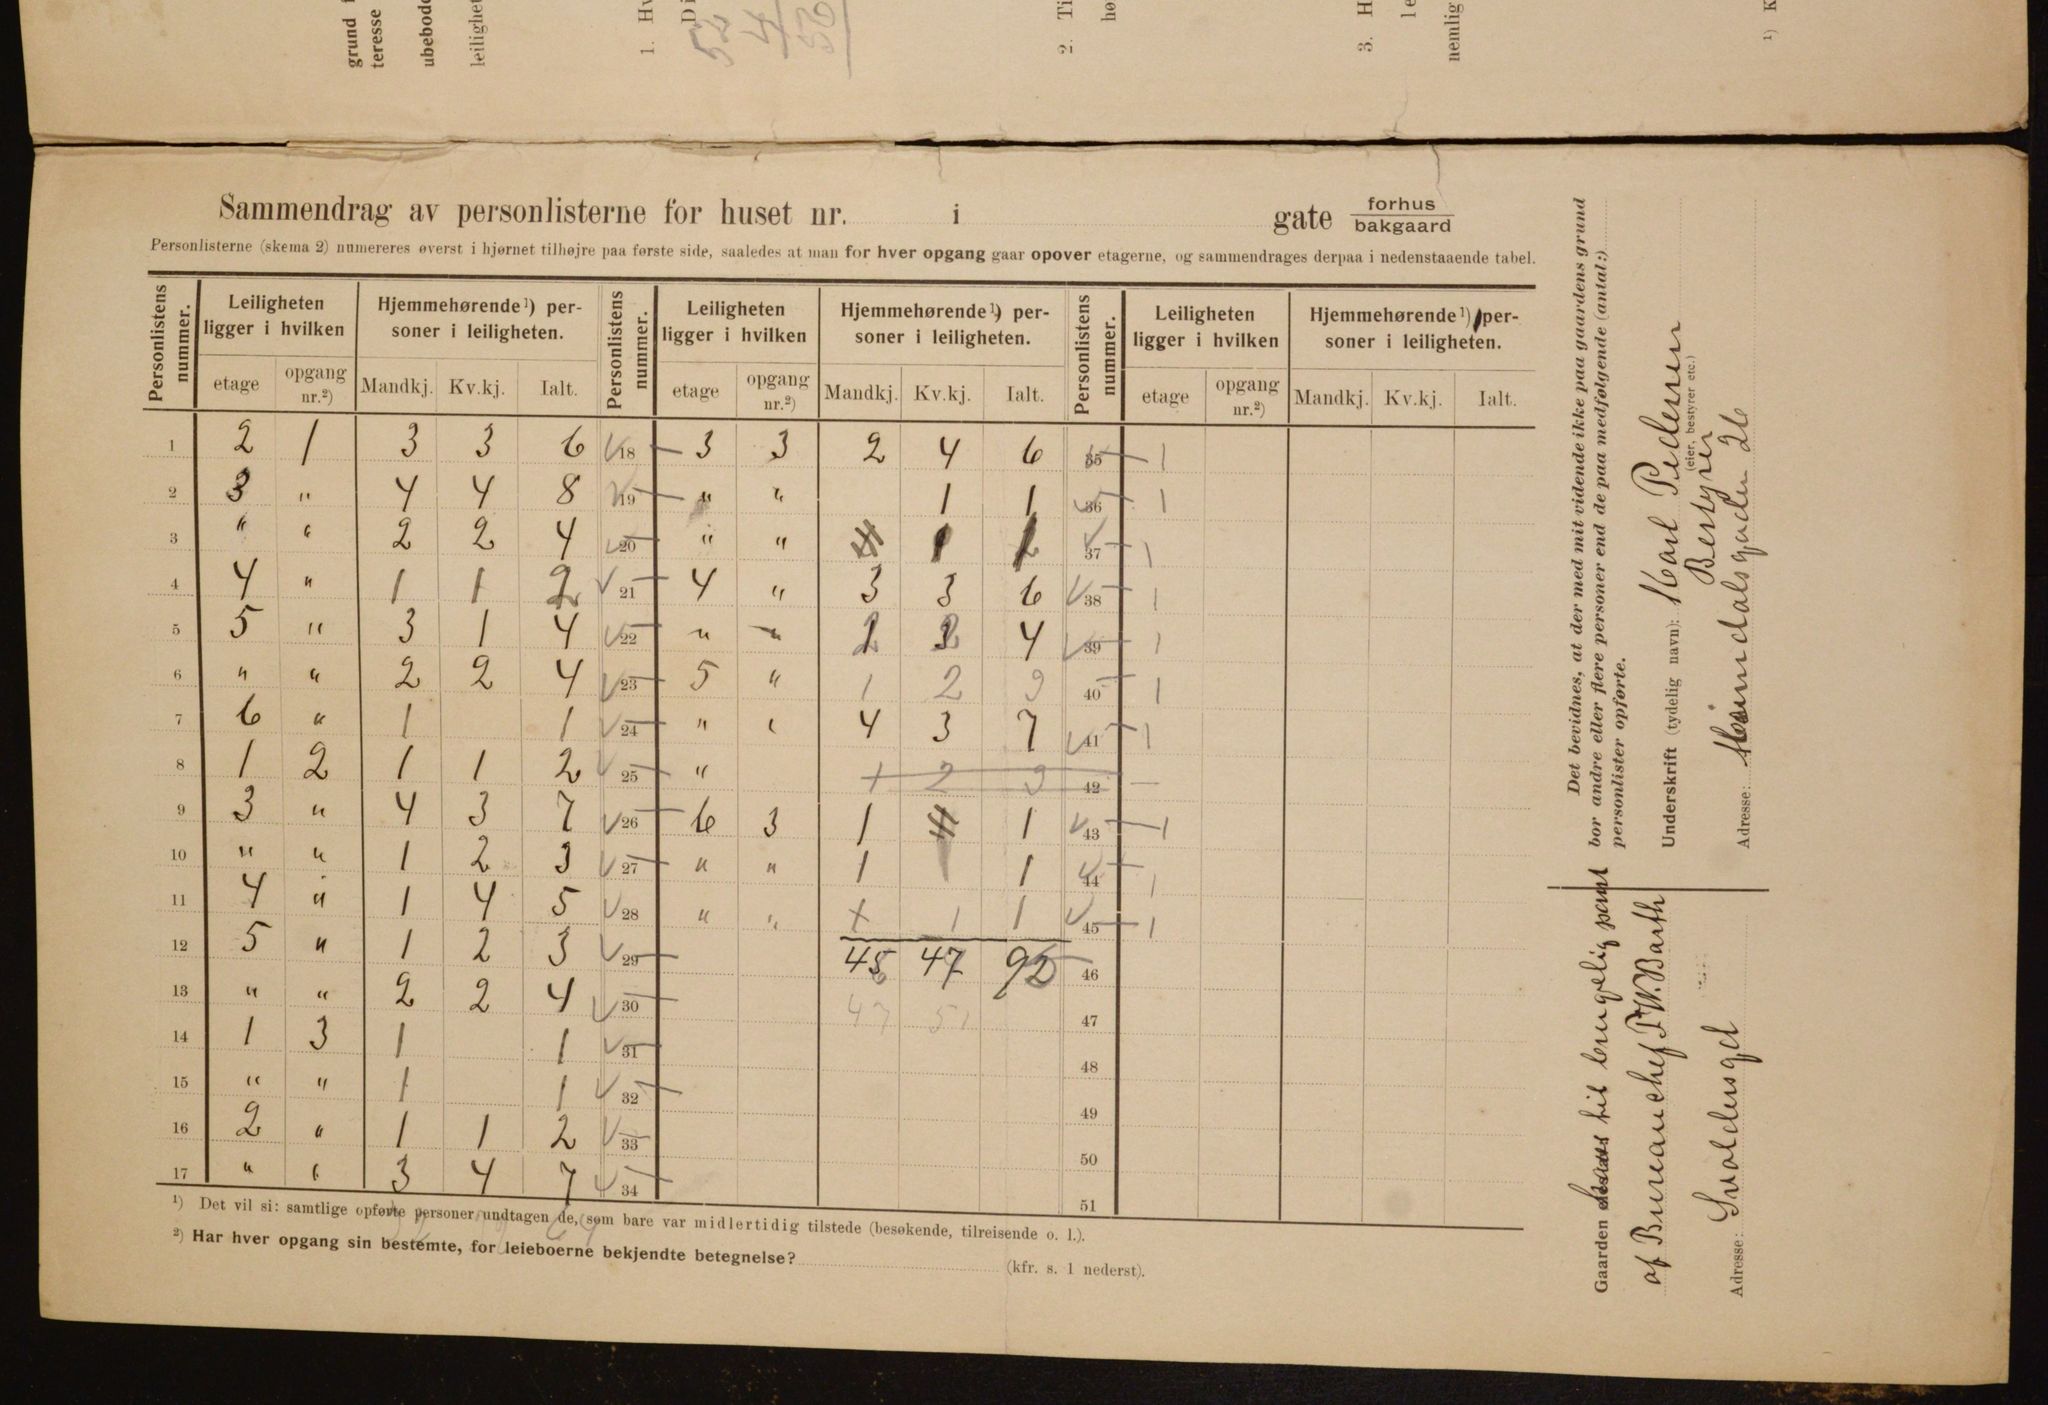 grund
teresse
ubebodd
leilighet
1. Hv
2. Ti
3. H
nemlig
¹) K
Sammendrag av personlisterne for huset nr. i gate forhus bakgaard
Personlisterne (skema 2) numereres øverst i hjørnet tilhøjre paa første side, saaledes at man for hver opgang gaar opover etagerne, og sammendrages derpaa i nedenstaaende tabel.
Personlistens nummer. Leiligheten ligger i hvilken Hjemmehørende¹) personer i leiligheten. Personlistens nummer. Leiligheten ligger i hvilken Hjemmehørende¹) personer i leiligheten. Personlistens nummer. Leiligheten ligger i hvilken Hjemmehørende¹) personer i leiligheten.
etage opgang nr.²) Mandkj. Kv.kj. Ialt. etage opgang nr.²) Mandkj. Kv.kj. Ialt. etage opgang nr.²) Mandkj. Kv.kj. Ialt.
1 2 1 3 3 6 18 3 3 2 4 6 35 1
2 3 " 4 4 8 19 " " 1 1 36 1
3 " " 2 2 4 20 " " 37 1
4 4 " 1 1 2 21 4 " 3 3 6 38 1
5 5 " 3 1 4 22 " " 4 39 1
6 " " 2 2 4 23 5 " 1 2 3 40 1
7 6 " 1 1 24 " " 4 3 7 41 1
8 1 2 1 1 2 25 " + 2 3 42
9 3 " 4 3 7 26 6 3 1 1 43 1
10 " " 1 2 3 27 " " 1 1 44 1
11 4 " 1 4 5 28 " " + 1 1 45 1
12 5 " 1 2 3 29 47 46
13 " " 2 2 4 30 47 51 47
14 1 3 1 1 31 48
15 " " 1 1 32 49
16 2 " 1 1 2 33 50
17 " " 3 4 7 34 51
¹) Det vil si: samtlige opførte personer undtagen de, som bare var midlertidig tilstede (besøkende, tilreisende o. l.).
²) Har hver opgang sin bestemte, for leieboerne bekjendte betegnelse?
(kfr. s. 1 nederst).
Det bevidnes, at der med mit vidende ikke paa gaardens grund
bor andre eller flere personer end de paa medfølgende (antal:)
personlister opførte.
Underskrift (tydelig navn): Karl Pedersen
(eier, bestyrer etc.)
Bestyrer
Adresse: 26
Gaarden til
af Bureauchef P. W. Barth
Adresse: Svoldersgd